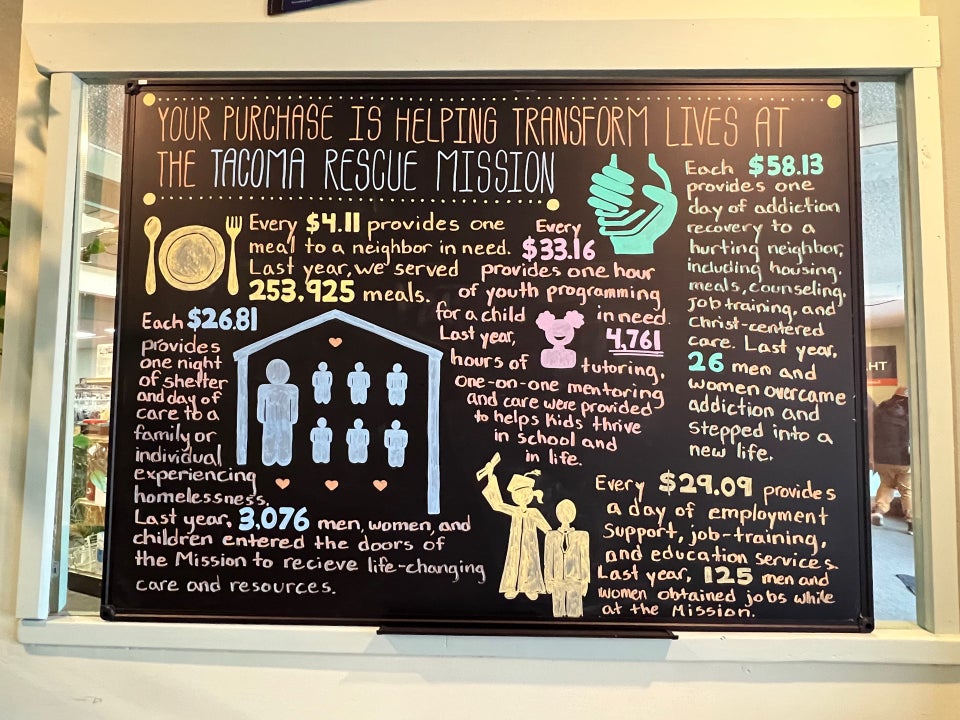 YOUR PURCHASE IS HELPING TRANSFORM LIVES AT
THE TACOMA RESCUE MISSION
Every $4.11 provides one
meal to a neighbor in need.
Last year, we served
253,925 meals.
Each $26.81
provides
one night
of shelter
and day of
care to a
family or
individual
experiencing
homelessness.
Last year, 3,076 men, women, and
children entered the doors of
the Mission to recieve life-changing
care and resources.
Every
$33.16
provides one hour
of youth programming
for a child in need.
Last year, 4,761
hours of tutoring,
one-on-one mentoring
and care were provided
to helps kids thrive
in school and
in life.
Each $58.13
provides one
day of addiction
recovery to a
hurting neighbor,
including housing,
meals, counseling,
job training, and
Christ-centered
care. Last year,
26 men and
women overcame
addiction and
stepped into a
new life.
Every $29.09 provides
a day of employment
support, job-training,
and education services.
Last year, 125 men and
women obtained jobs while
at the Mission.